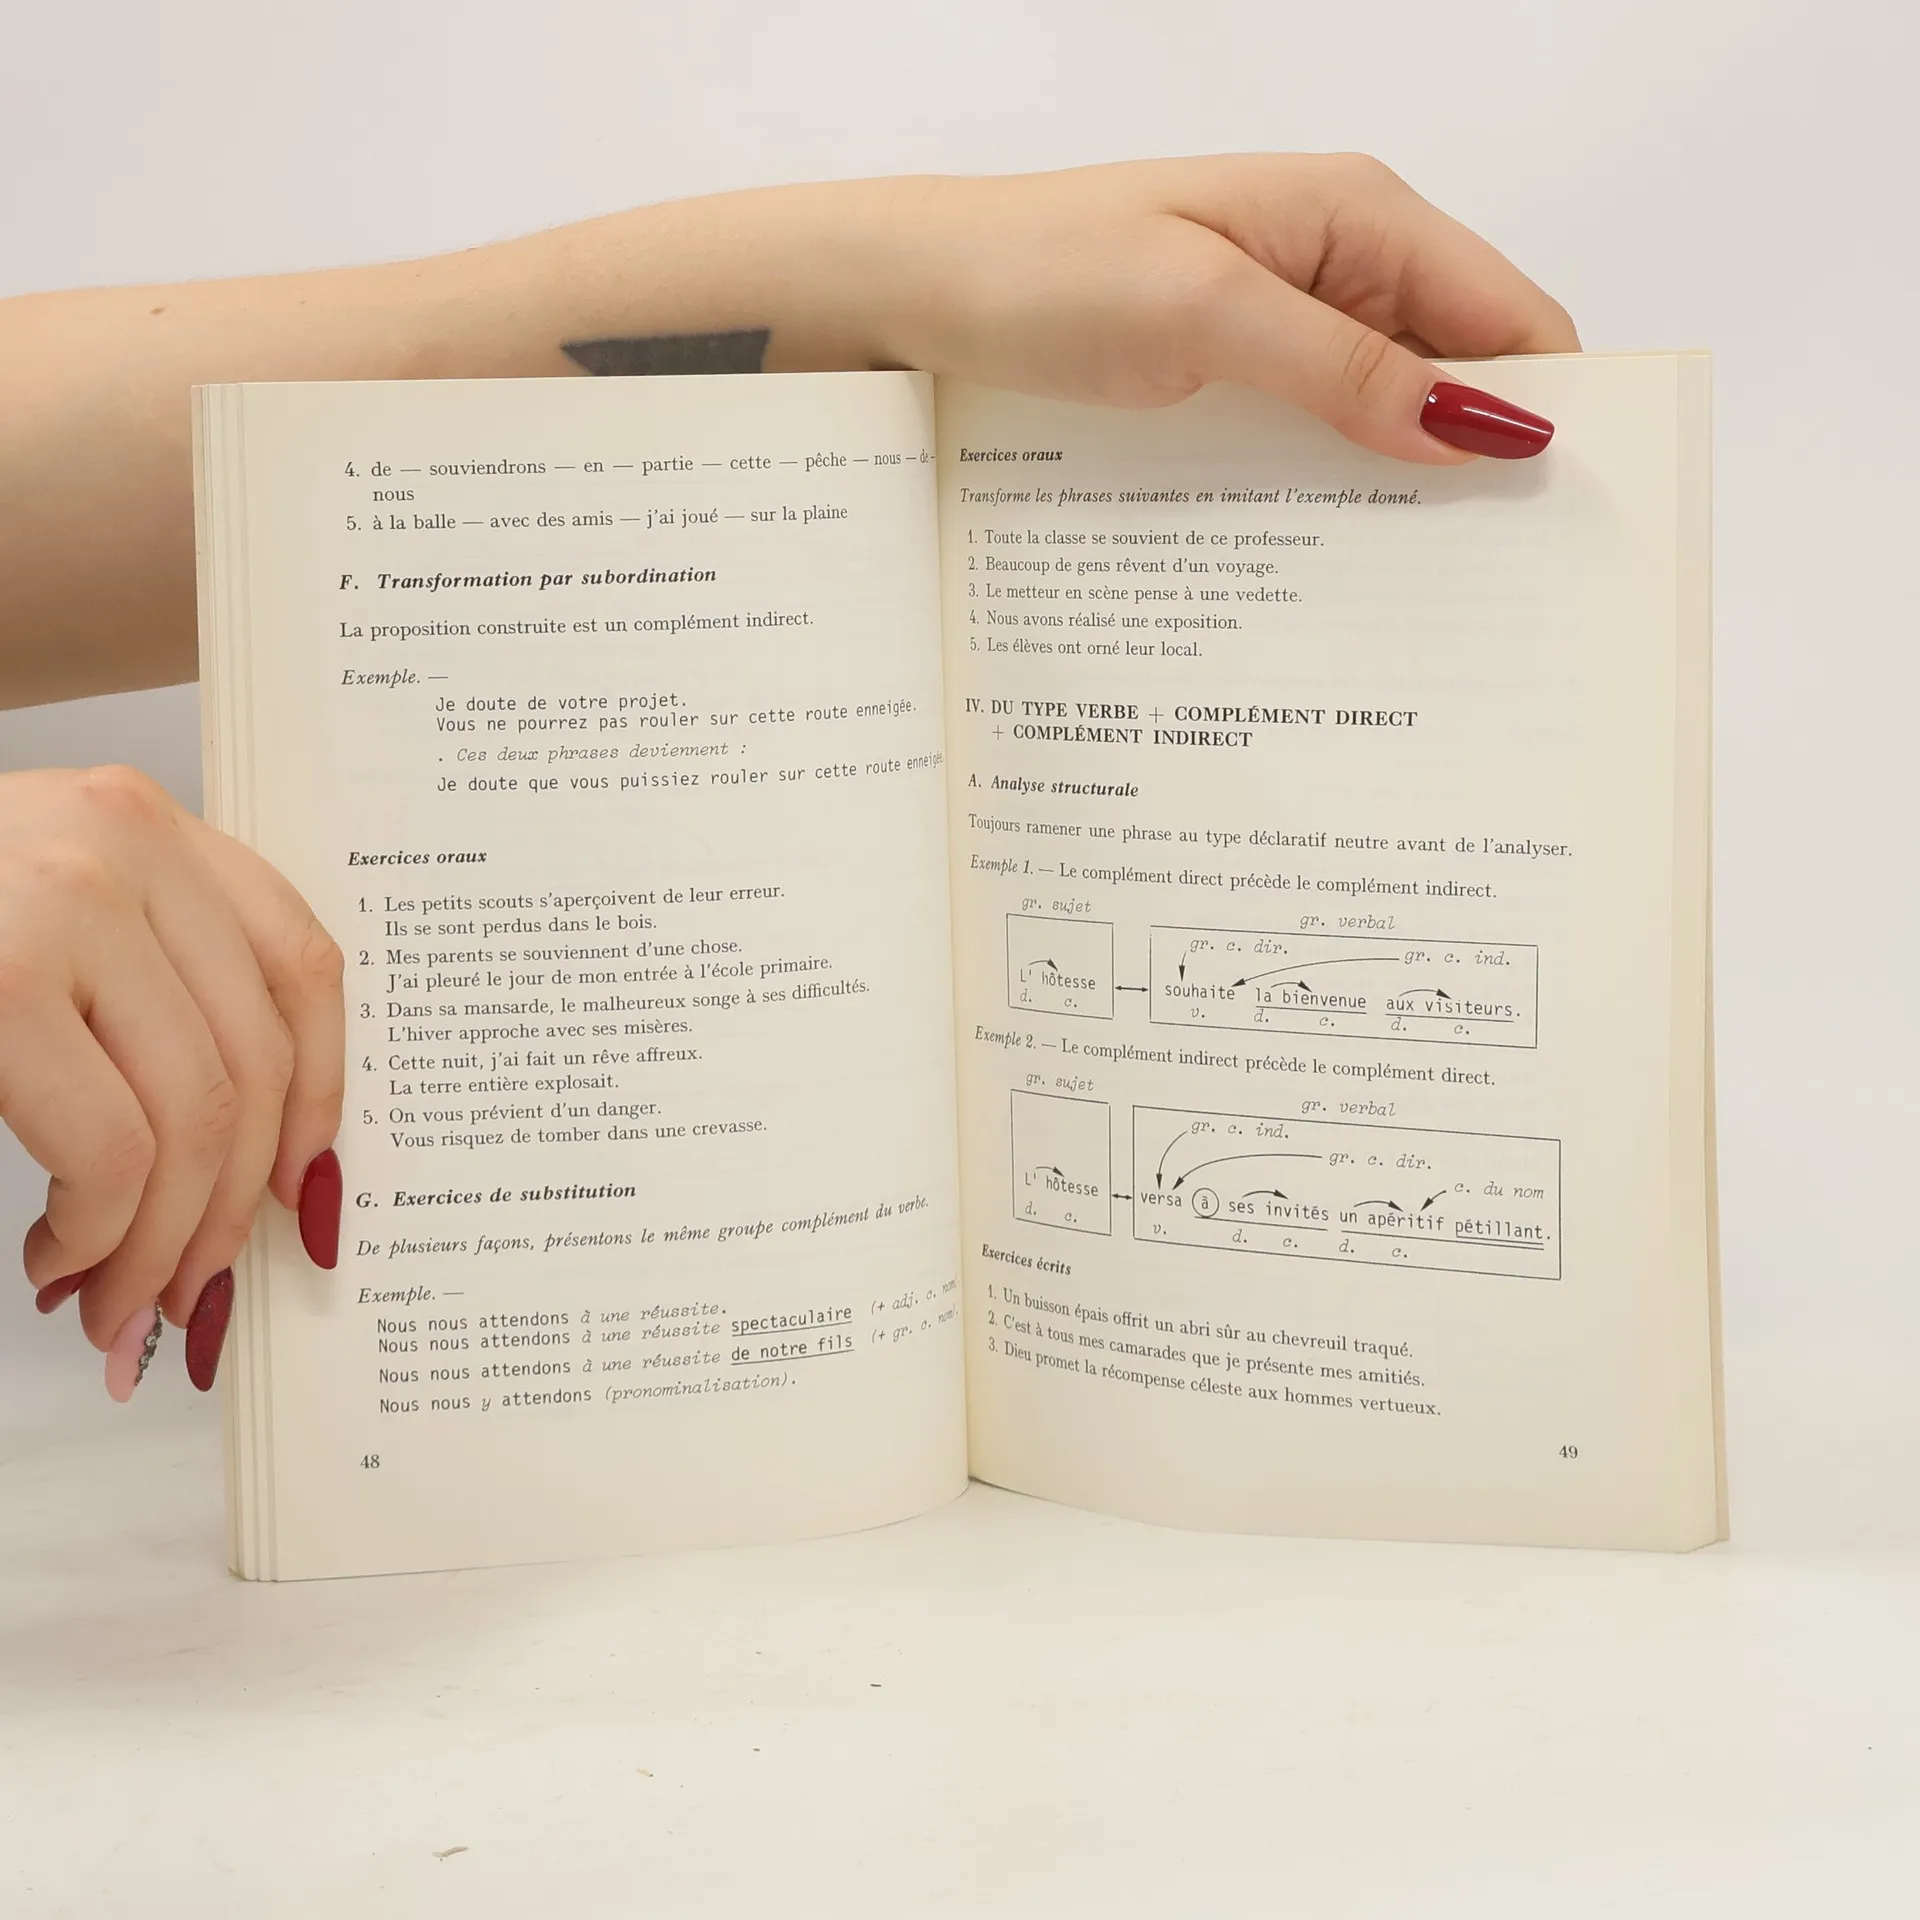 4. de — souviendrons — en — partie — cette — pêche — nous — de -
nous
5. à la balle — avec des amis — j'ai joué — sur la plaine
F. Transformation par subordination
La proposition construite est un complément indirect.
Exemple. —
Je doute de votre projet.
Vous ne pourrez pas rouler sur cette route enneigée.
. Ces deux phrases deviennent :
Je doute que vous puissiez rouler sur cette route enneigée.
Exercices oraux
1. Les petits scouts s'aperçoivent de leur erreur.
Ils se sont perdus dans le bois.
2. Mes parents se souviennent d'une chose.
J'ai pleuré le jour de mon entrée à l'école primaire.
3. Dans sa mansarde, le malheureux songe à ses difficultés.
L'hiver approche avec ses misères.
4. Cette nuit, j'ai fait un rêve affreux.
La terre entière explosait.
5. On vous prévient d'un danger.
Vous risquez de tomber dans une crevasse.
G. Exercices de substitution
De plusieurs façons, présentons le même groupe complément du verbe.
Exemple. —
Nous nous attendons à une réussite.
Nous nous attendons à une réussite spectaculaire (+ adj. c. nom).
Nous nous attendons à une réussite de notre fils (+ gr. c. nom).
Nous nous y attendons (pronominalisation).
48
Exercices oraux
Transforme les phrases suivantes en imitant l'exemple donné.
1. Toute la classe se souvient de ce professeur.
2. Beaucoup de gens rêvent d'un voyage.
3. Le metteur en scène pense à une vedette.
4. Nous avons réalisé une exposition.
5. Les élèves ont orné leur local.
IV. DU TYPE VERBE + COMPLÉMENT DIRECT
+ COMPLÉMENT INDIRECT
A. Analyse structurale
Toujours ramener une phrase au type déclaratif neutre avant de l'analyser.
Exemple 1. — Le complément direct précède le complément indirect.
gr. sujet
gr. verbal
gr. c. dir.
gr. c. ind.
L' hôtesse souhaite la bienvenue aux visiteurs.
d. c. v. d. c. d. c.
Exemple 2. — Le complément indirect précède le complément direct.
gr. sujet
gr. verbal
gr. c. ind.
gr. c. dir.
c. du nom
L' hôtesse versa à ses invités un apéritif pétillant.
d. c. v. d. c. d. c.
Exercices écrits
1. Un buisson épais offrit un abri sûr au chevreuil traqué.
2. C'est à tous mes camarades que je présente mes amitiés.
3. Dieu promet la récompense céleste aux hommes vertueux.
49